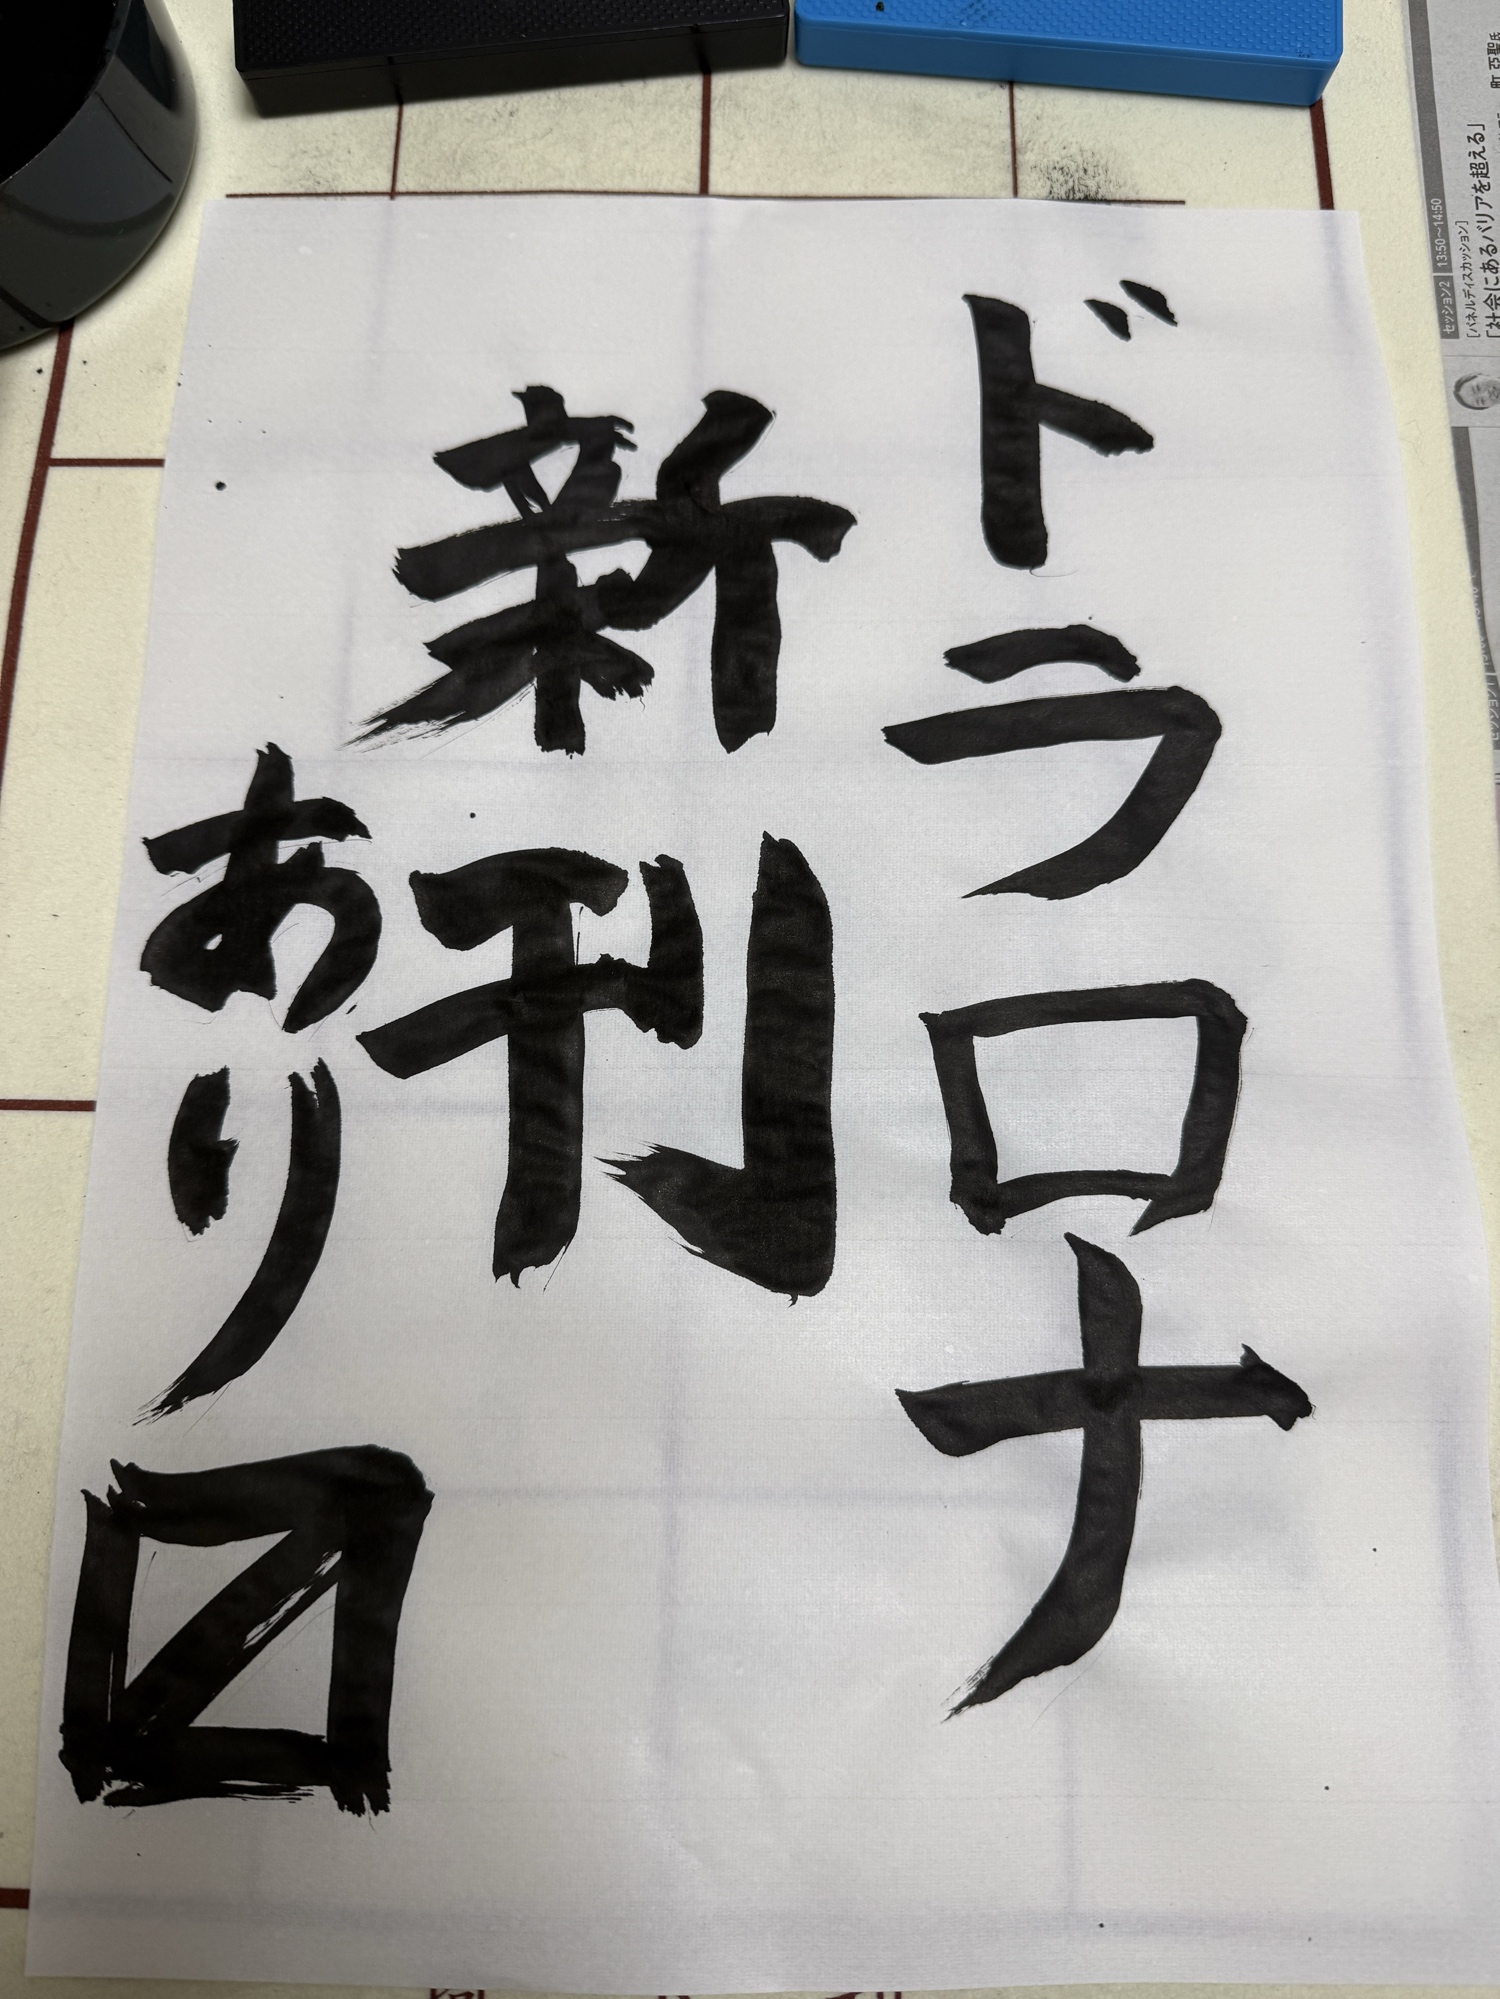 ドラロナ
新刊
あり〼
セッション2 13:50~14:50
[パネルディスカッション]
「社会にあるバリアを超える」
町 亞聖氏